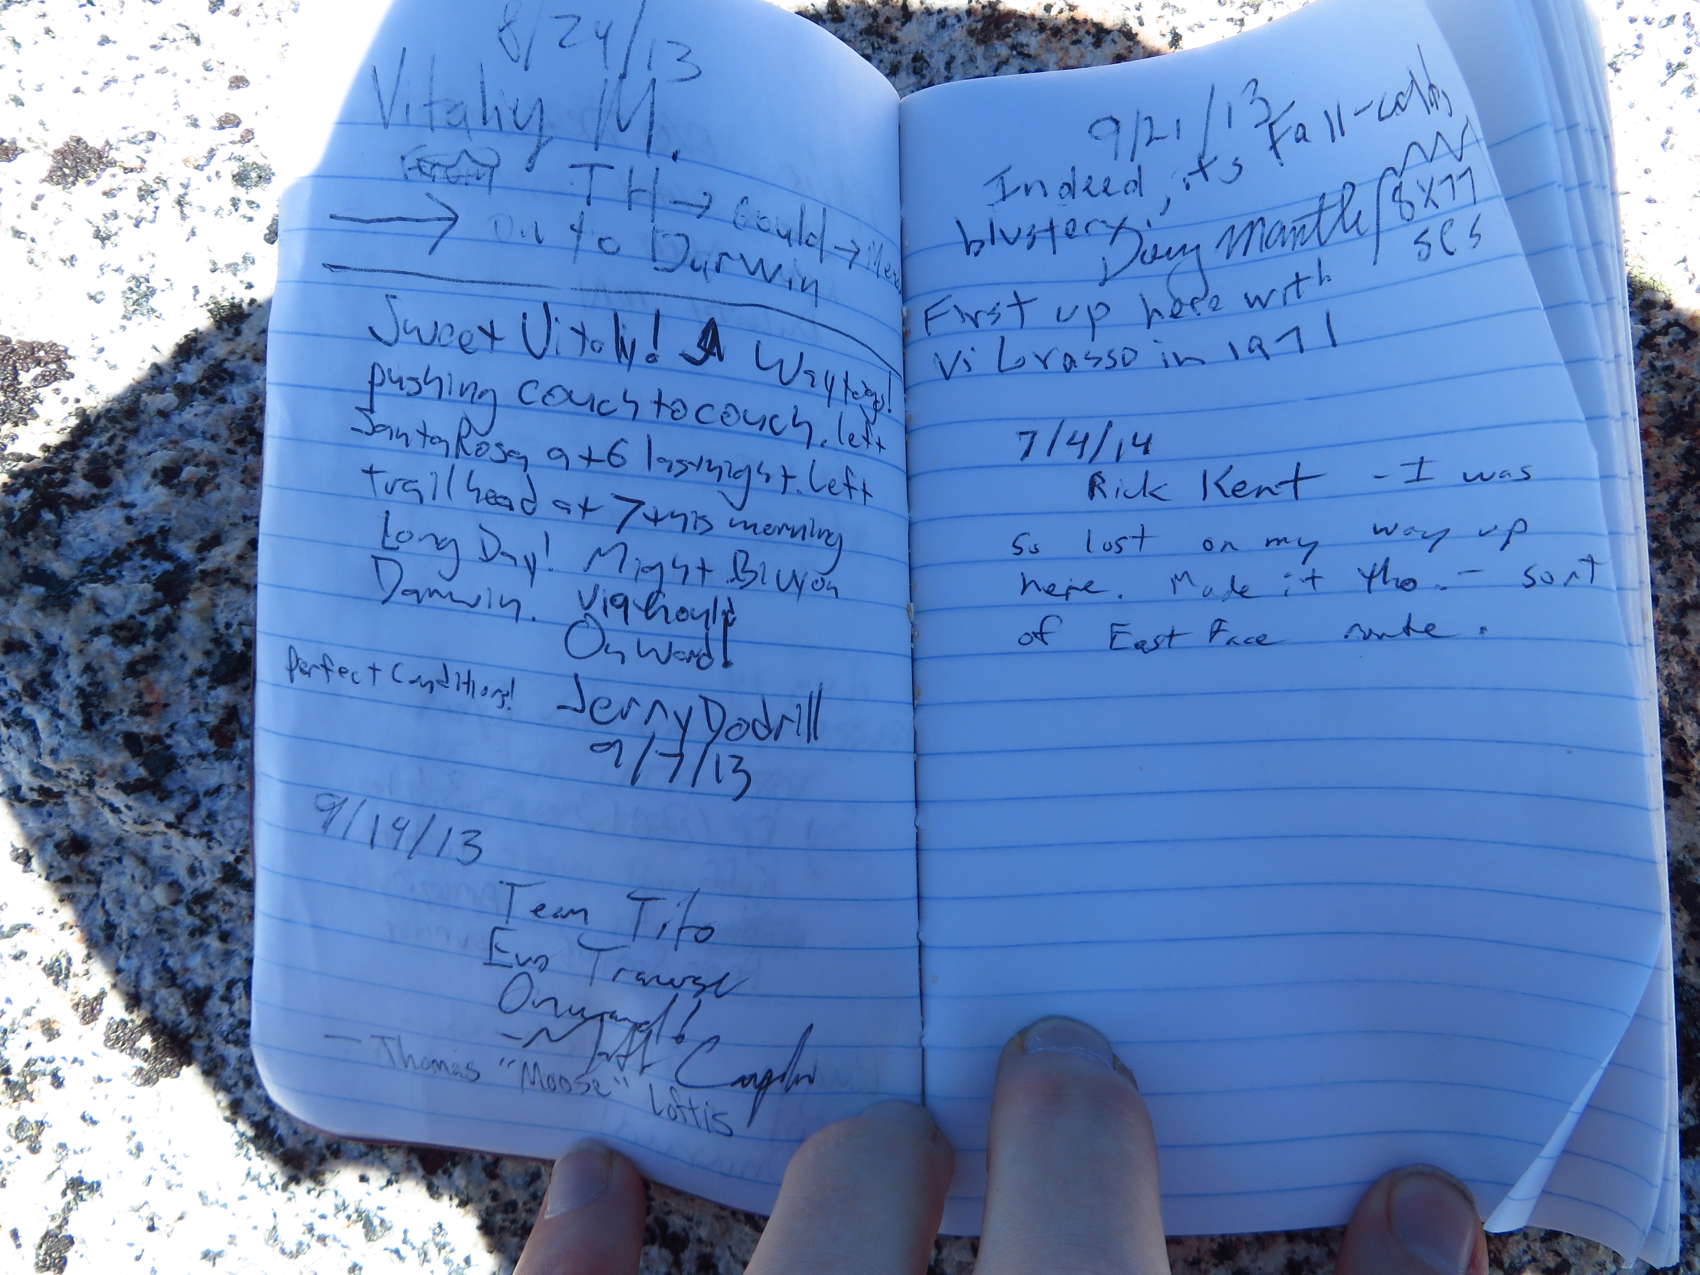 8/24/13
Vitaliy M.
TH → Gould → 
→ on to Darwin
Sweet Vitaliy! Way to go!
pushing couch to couch. left
Santa Rosa at 6 last night. Left
trailhead at 7 this morning
Long Day! Might Bivy on
Darwin. via Gould
Onward!
Perfect Conditions!
Jerry Dodrill
9/7/13
9/19/13
Team Tito
Evo Traverse
Onward!
- Matt
- Thomas "Moose" Loftis
9/21/13
Indeed, its Fall-cold,
blustery;
Doug Mantle 8x77
SPS
First up here with
Vi Grasso in 1971
7/4/14
Rick Kent - I was
so lost on my way up
here. Made it tho. - sort
of East Face route.